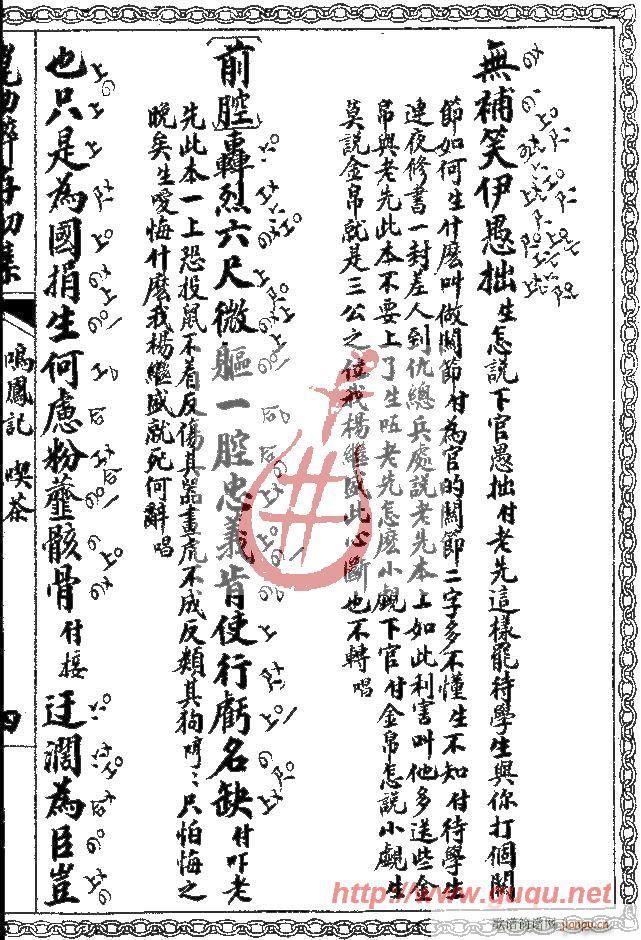 無補笑伊愚拙生怎說下官愚拙付老先這樣罷待學生與你打個關
節如何生什麽叫做關節付為官的關節二字多不懂生不知付待學生
連夜修書一封差人到仇總兵處說老先本上如此利害叫他多送些金
帛與老先此本不要上了生唔老先怎麽小覷下官付金帛怎說小覷生
莫說金帛就是三公之位我楊繼盛此心斷也不轉唱
前腔轟烈六尺微軀一腔忠義肯使行虧名缺付吓老
先此本一上恐投鼠不着反傷其器畫虎不成反類其狗吓只怕悔之
晚矣生愛悔什麽我楊繼盛就死何辭唱
也只是為國捐生何慮粉虀骸骨付接迂濶為臣豈
鳴鳳記 喫茶
四
http://www.ququ.net